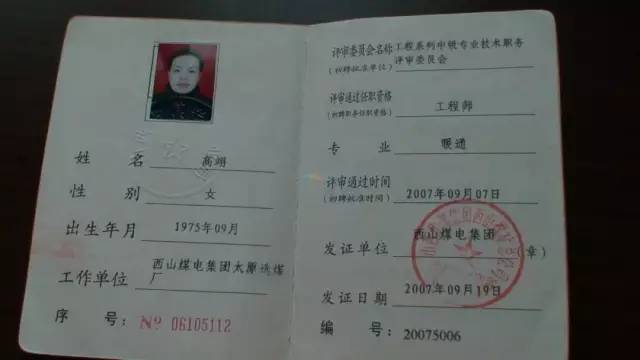 姓 名 高翊
性 别 女
出生年月 1975年09月
工作单位 西山煤电集团太原选煤
厂
序 号: Nº 06105112
评审委员会名称 工程系列中级专业技术职务
(初聘批准单位) 评审委员会
评审通过任职资格 工程师
(初聘职务任职资格)
专 业 暖通
评审通过时间 2007年09月07日
(初聘批准时间)
发证单位 西山煤电集团 (章)
发证日期 2007年09月19日
编 号: 20075006